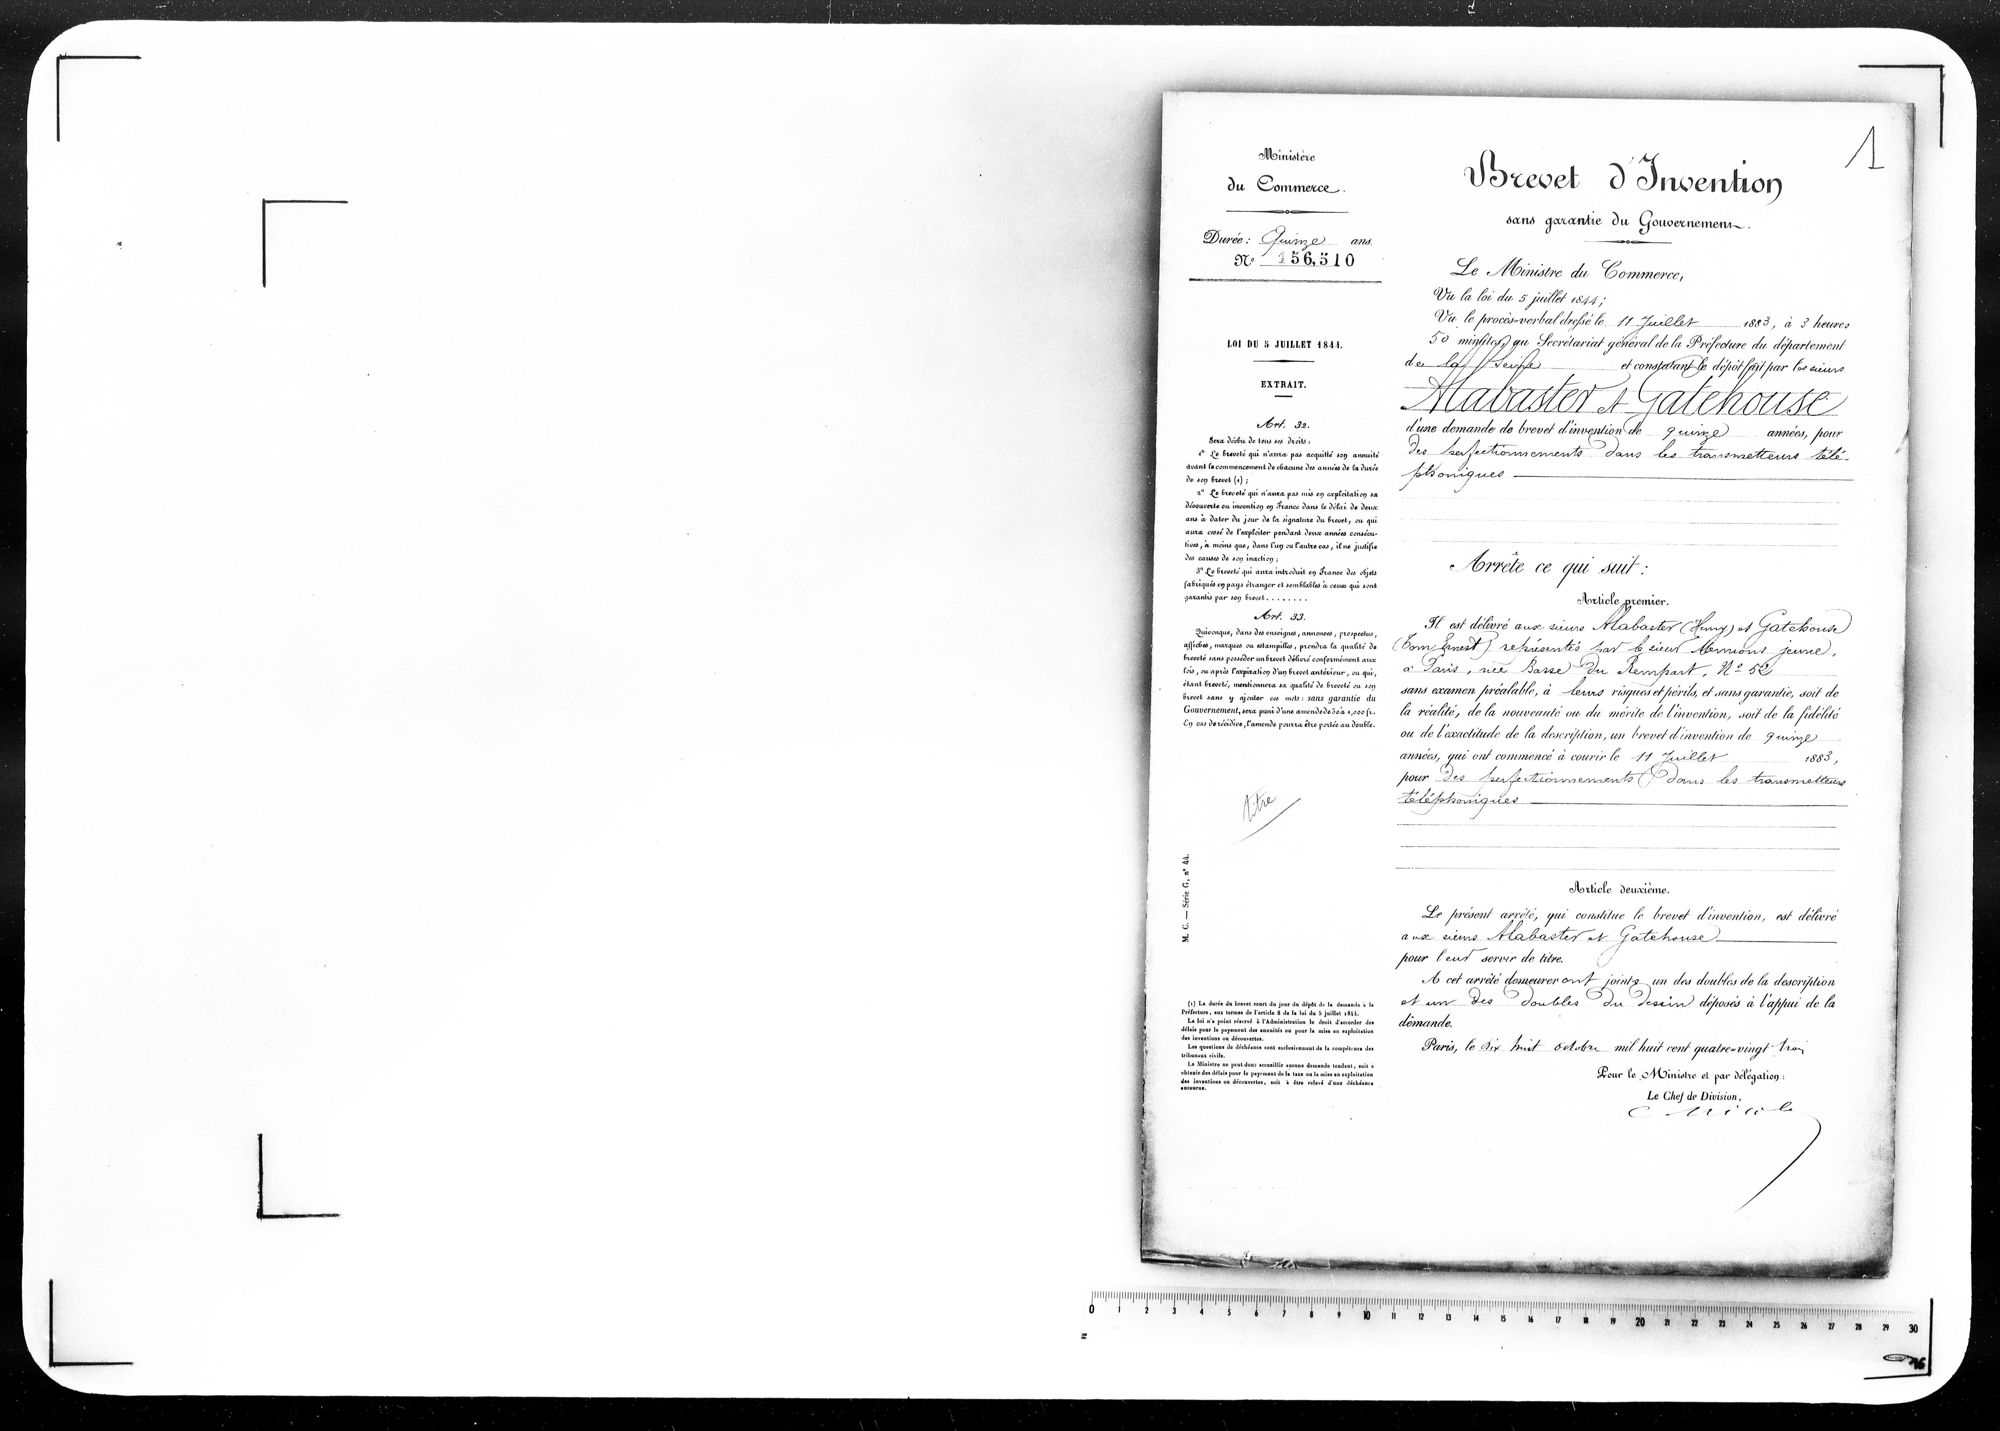 1
Ministère
du Commerce.
Durée : Quinze ans.
N° 156,510
LOI DU 5 JUILLET 1844.
EXTRAIT.
Art. 32.
Sera déchu de tous ses droits :
1° Le breveté qui n'aura pas acquitté son annuité
avant le commencement de chacune des années de la durée
de son brevet (1) ;
2° Le breveté qui n'aura pas mis en exploitation sa
découverte ou invention en France dans le délai de deux
ans à dater du jour de la signature du brevet, ou qui
aura cessé de l'exploiter pendant deux années consécu-
tives, à moins que, dans l'un ou l'autre cas, il ne justifie
des causes de son inaction ;
3° Le breveté qui aura introduit en France des objets
fabriqués en pays étranger et semblables à ceux qui sont
garantis par son brevet........
Art. 33.
Quiconque, dans des enseignes, annonces, prospectus,
affiches, marques ou estampilles, prendra la qualité de
breveté sans posséder un brevet délivré conformément aux
lois, ou après l'expiration d'un brevet antérieur, ou qui,
étant breveté, mentionnera sa qualité de breveté ou son
brevet sans y ajouter ces mots : sans garantie du
Gouvernement, sera puni d'une amende de 50 à 1,000 fr.
En cas de récidive, l'amende pourra être portée au double.
titre
M. C. — Série G, n° 44.
(1) La durée du brevet court du jour du dépôt de la demande à la
Préfecture, aux termes de l'article 8 de la loi du 5 juillet 1844.
La loi n'a point réservé à l'Administration le droit d'accorder des
délais pour le payement des annuités ou pour la mise en exploitation
des inventions ou découvertes.
Les questions de déchéance sont exclusivement de la compétence des
tribunaux civils.
Le Ministre ne peut donc accueillir aucune demande tendant, soit à
obtenir des délais pour le payement de la taxe ou la mise en exploitation
des inventions ou découvertes, soit à être relevé d'une déchéance
encourue.
Brevet d'Invention
sans garantie du Gouvernement.
Le Ministre du Commerce,
Vu la loi du 5 juillet 1844 ;
Vu le procès-verbal dressé le 11 Juillet 1883, à 3 heures
50 minutes, au Secrétariat général de la Préfecture du département
de la Seine et constatant le dépôt fait par les sieurs
Alabaster et Gatehouse
d'une demande de brevet d'invention de quinze années, pour
des perfectionnements dans les transmetteurs télé-
phoniques
Arrête ce qui suit :
Article premier.
Il est délivré aux sieurs Alabaster (Henry) et Gatehouse
(Tom Ernest) représentés par le sieur Armions jeune,
à Paris, rue Basse du Rempart, N° 52
sans examen préalable, à leurs risques et périls, et sans garantie, soit de
la réalité, de la nouveauté ou du mérite de l'invention, soit de la fidélité
ou de l'exactitude de la description, un brevet d'invention de quinze
années, qui ont commencé à courir le 11 Juillet 1883,
pour des perfectionnements dans les transmetteurs
téléphoniques
Article deuxième.
Le présent arrêté, qui constitue le brevet d'invention, est délivré
aux sieurs Alabaster et Gatehouse
pour leur servir de titre.
A cet arrêté demeureront joints un des doubles de la description
et un des doubles du dessin déposés à l'appui de la
demande.
Paris, le dix huit octobre mil huit cent quatre-vingt trois
Pour le Ministre et par délégation :
Le Chef de Division,
0 1 2 3 4 5 6 7 8 9 10 11 12 13 14 15 16 17 18 19 20 21 22 23 24 25 26 27 28 29 30
16